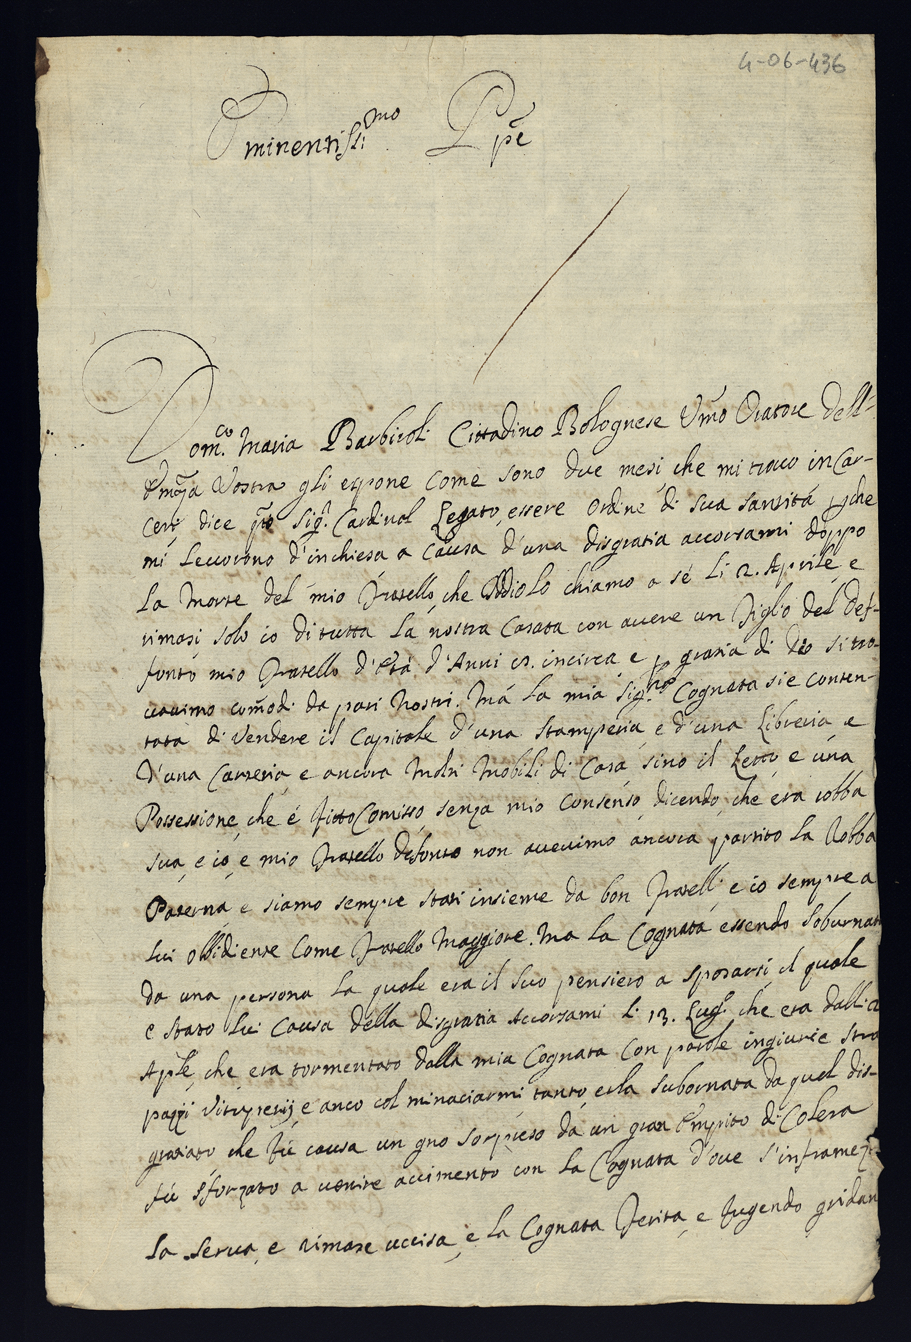 4-06-436
Eminentiss.mo Ppe
Dom.co Maria Barbiroli Cittadino Bolognese Umo Oratore dell'
Emza Vostra gli espone come sono due mesi, che mi trovo in Car-
ceri, dice qto Sigr. Cardinal Legato, essere ordine di sua santità, che
mi Levorono d'inchiesa a causa d'una disgratia accorsami doppo
la Morte del mio Fratello, che Iddio Lo chiamo a sé Li 2. Aprile, e
rimasi solo io di tutta La nostra Casata con avere un Figlio del def-
funto mio Fratello d'Età d'Anni incirca, e p grazia di Dio si tro-
vavimo com̃odi da pari Nostri. Mà La mia Sig.ra Cognata si è conten-
tata di Vendere il Capitale d'una Stamperia, e d'una Libreria, e
d'una Carteria, e ancora Molti Mobili di Casa, sino il Letto, e una
Possessione, che é Fitto Comisso senza mio Consenso, dicendo, che era robba
sua, e io, e mio Fratello defonto non avevimo ancora partito La Robba
Paterna, e siamo sempre stati insieme da bon Fratelli, e io sempre a
Lui Obbidiente Come Fratello Maggiore. Ma La Cognata essendo Soburnata
da una persona La quale era il suo pensiero a sposarsi, il quale
e stato Lui Causa della disgratia Accorsami Li 13. Lugl. che era dalli 2
Aple, che era tormentato dalla mia Cognata Con parole, ingiurie stra
pazzi Vituperij, e anco col minaciarmi, tanto erla Subornata da quel dis-
graziato che Fù causa un gno sorpreso da un gran Empito di Colera
fù sforzato a venire accimento con La Cognata d'ove s'inframezò
La Serva, e rimase uccisa, e la Cognata Ferita, e Fugendo gridan